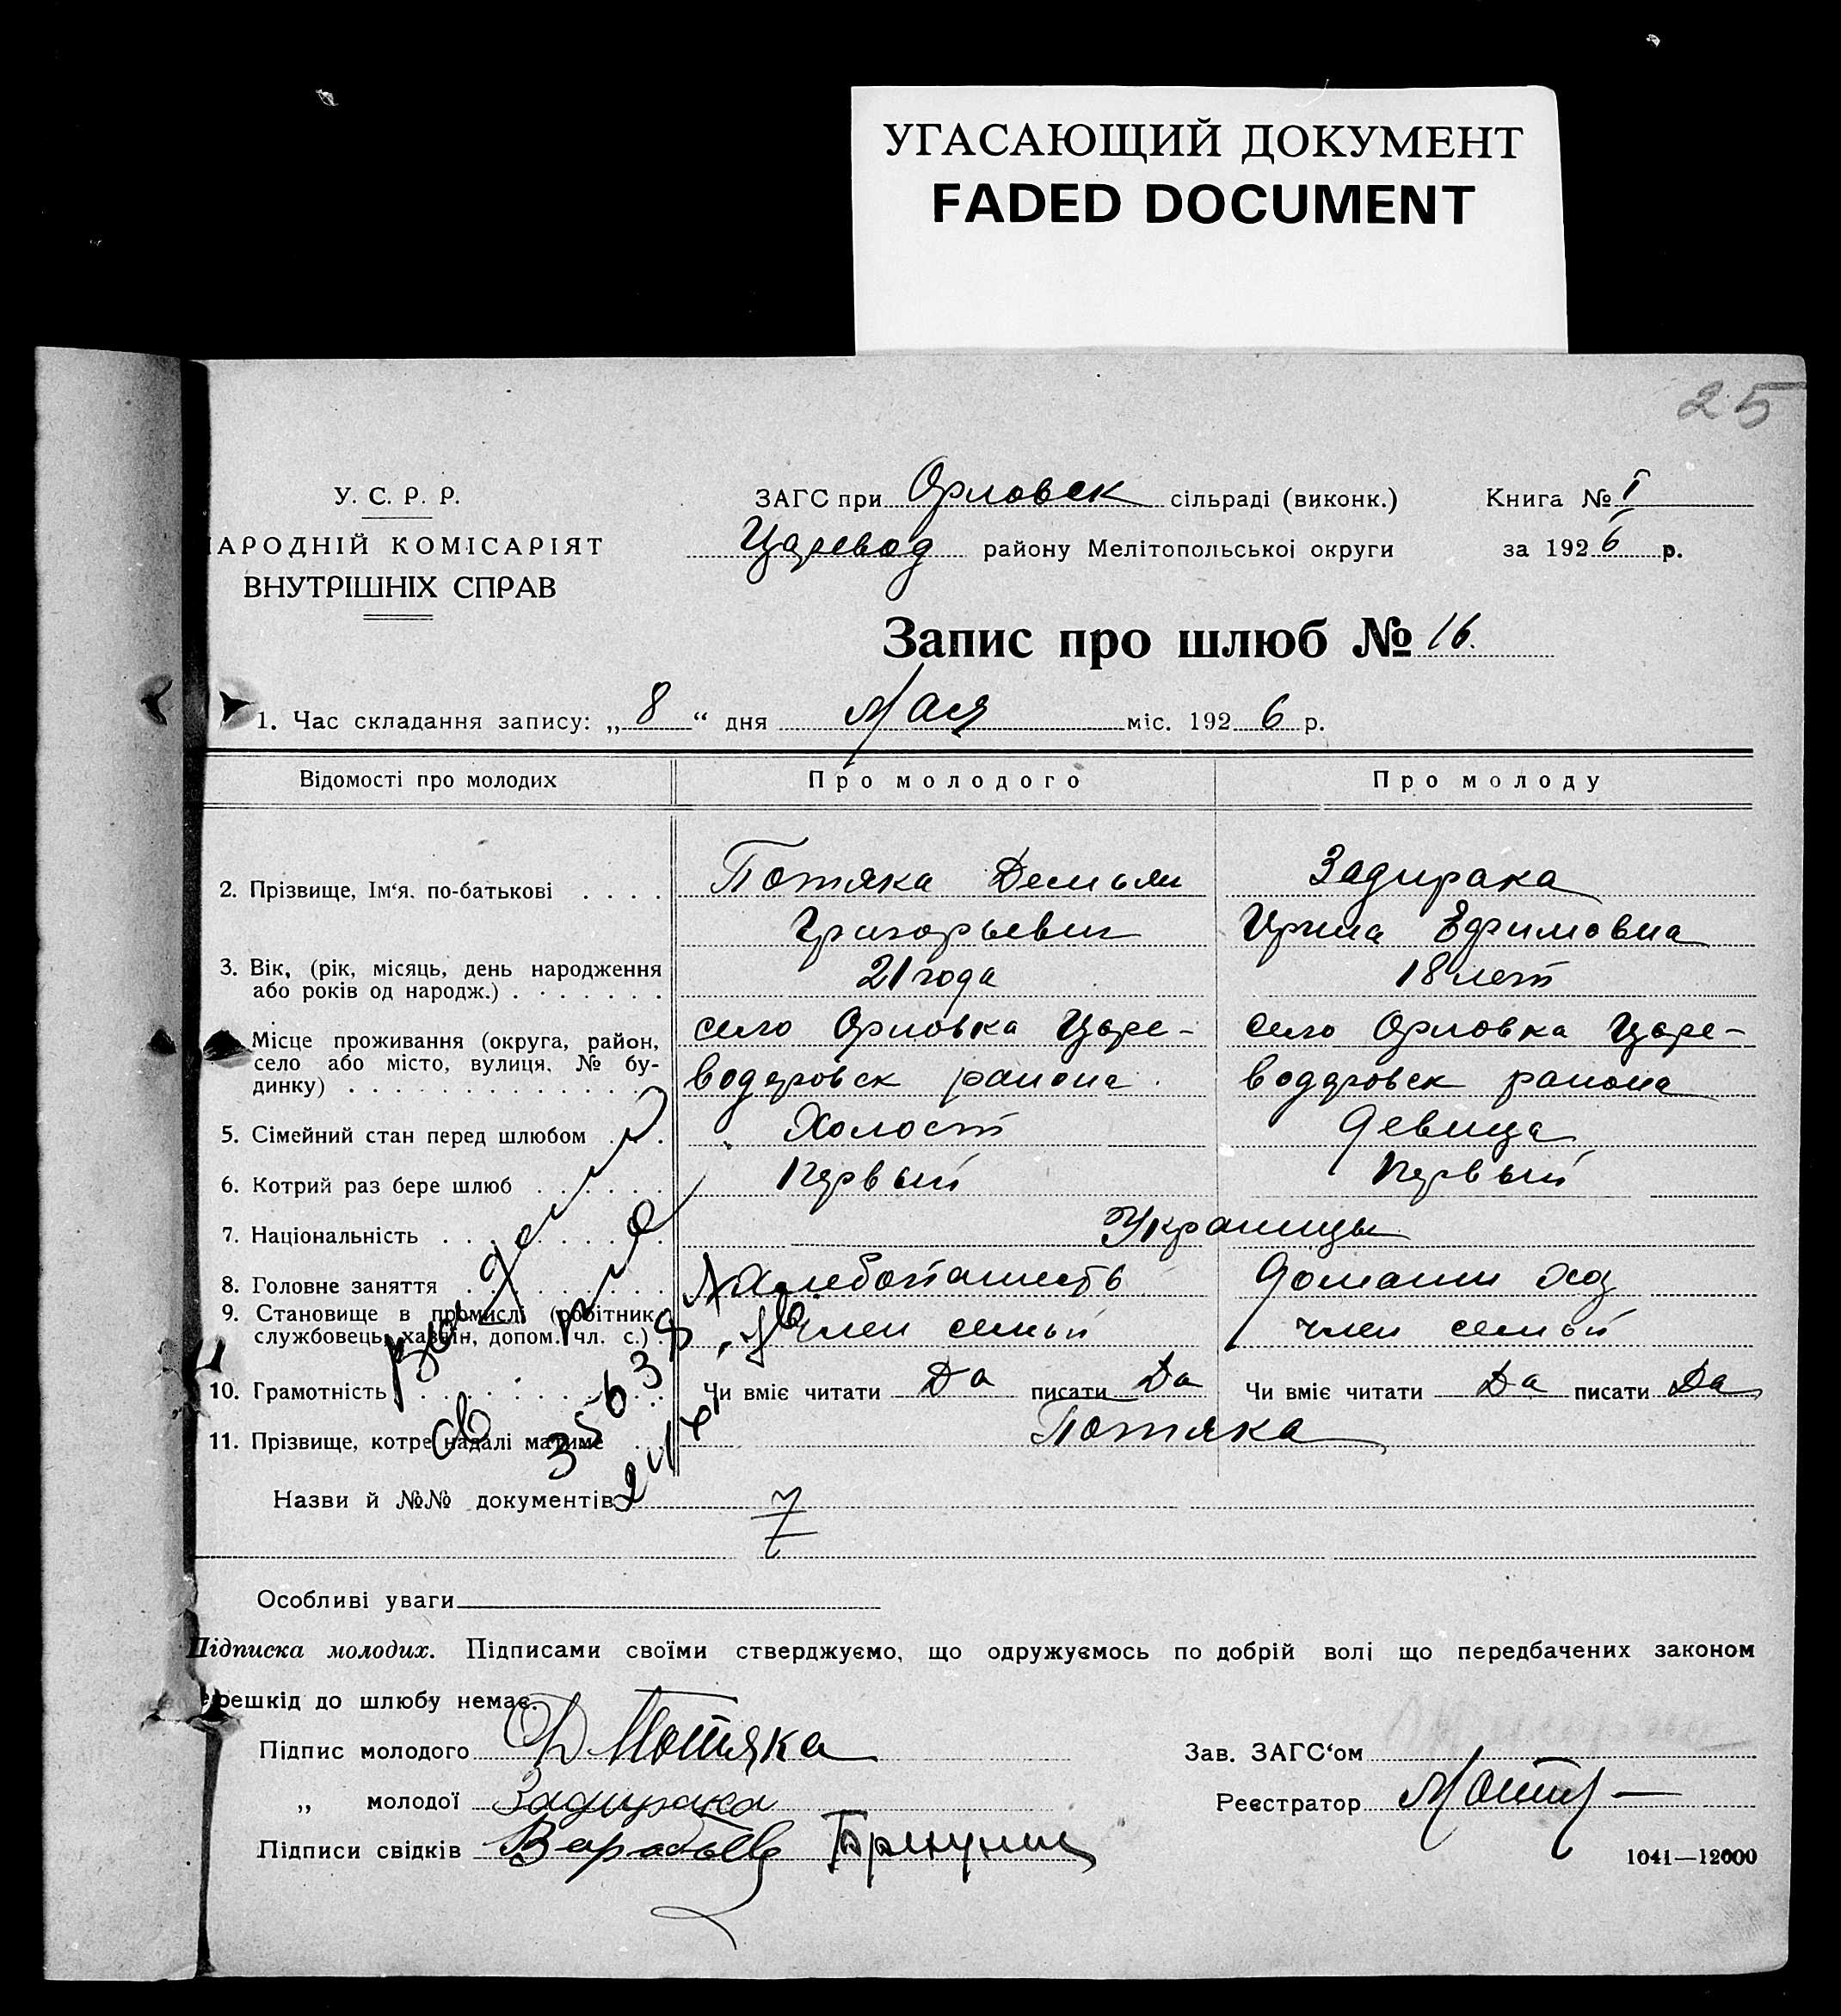 УГАСАЮЩИЙ ДОКУМЕНТ
FADED DOCUMENT
25
У. С. Р. Р.
НАРОДНІЙ КОМІСАРІЯТ
ВНУТРІШНІХ СПРАВ
ЗАГС при Орловск сільраді (виконк.) Книга № I
Царевод району Мелітопольської округи за 1926 р.
Запис про шлюб № 16.
1. Час складання запису: „ 8 “ дня Мая міс. 1926 р.
Відомості про молодих Про молодого Про молоду
2. Прізвище, Ім‘я. по-батькові Потяка Демьян Задирака
Григорьевич Ирина Ефимовна
3. Вік, (рік, місяць, день народження 21 года 18 лет
або років од народж.)
Місце проживання (округа, район, село Орловка Царе- село Орловка Царе-
село або місто, вулиця, № бу-
динку) водаровск района водаровск района
5. Сімейний стан перед шлюбом Холост девица
6. Котрий раз бере шлюб Первый Первый
7. Національність Украинцы
8. Головне заняття Хлебопашеств домашн хоз
9. Становище в промислі (робітник,
службовець, хазяїн, допом. чл. с.) член семьи член семьи
10. Грамотність Чи вміє читати Да писати Да Чи вміє читати Да писати Да
11. Прізвище, котре надалі матиме Потяка
Назви й №№ документів
Особливі уваги
Підписка молодих. Підписами своїми стверджуємо, що одружуємось по добрій волі що передбачених законом
перешкід до шлюбу немає.
Підпис молодого Д Потяка Зав. ЗАГС‘ом
„ молодої Задирака Реєстратор
Підписи свідків
1041—12000